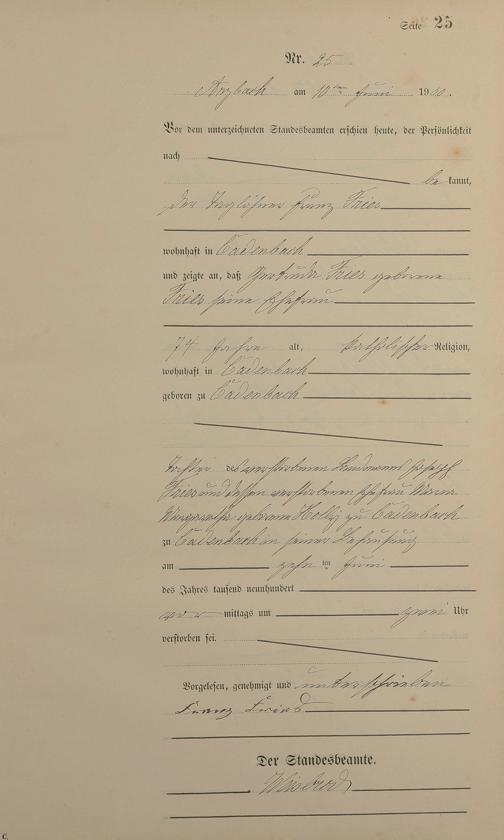 Seite 25
Nr. 25
Arzbach am 10ten Juni 1900.
Vor dem unterzeichneten Standesbeamten erschien heute, der Persönlichkeit
nach
be kannt,
der Taglöhner Franz Fries
wohnhaft in Cadenbach
und zeigte an, daß Gertruda Fries geborene
Fries seine Ehefrau
74 Jahre alt, katholischer Religion,
wohnhaft in Cadenbach
geboren zu Cadenbach
Tochter des verstorbenen Joseph
Fries und dessen verstorbenen Ehefrau Maria
geborene Holly zu Cadenbach
zu Cadenbach in seiner Behausung
am zehn ten Juni
des Jahres tausend neunhundert
vor mittags um zwei Uhr
verstorben sei.
Vorgelesen, genehmigt und unterschrieben
Franz Fries
Der Standesbeamte.
C.